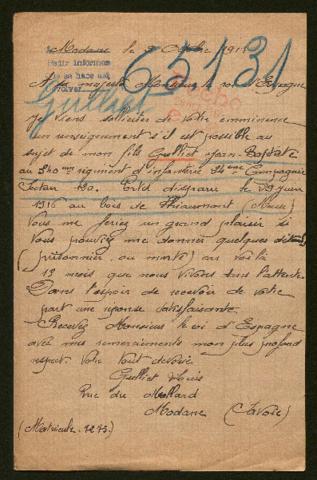 Modane le 9 Octobre 1917
Pedir informes
si se hace así
65131
A sa majesté Monsieur le roi d'Espagne
Gulliet
Je viens solliciter de votre emminence
un renseignement s'il est possible au
sujet de mon fils Gulliet Jean-Baptiste
au 340ème régiment d'infanterie Compagnie
Secteur porté disparu le 29 juin
1916 au bois de Thiaumont (Meuse)
Vous me feriez un grand plaisir si
Vous pouvez me donner quelques détails
(prisonnier ou morts) car voilà
13 mois que nous vivons dans l'attente
Dans l'espoir de recevoir de votre
part une réponse satisfaisante.
Recevez Monsieur le roi d'Espagne
avec mes remerciements mon plus profond
respect. Votre tout dévoué
Gulliet Louis
Rue du Mollard
Modane (Savoie)
(Matricule. 1275.)